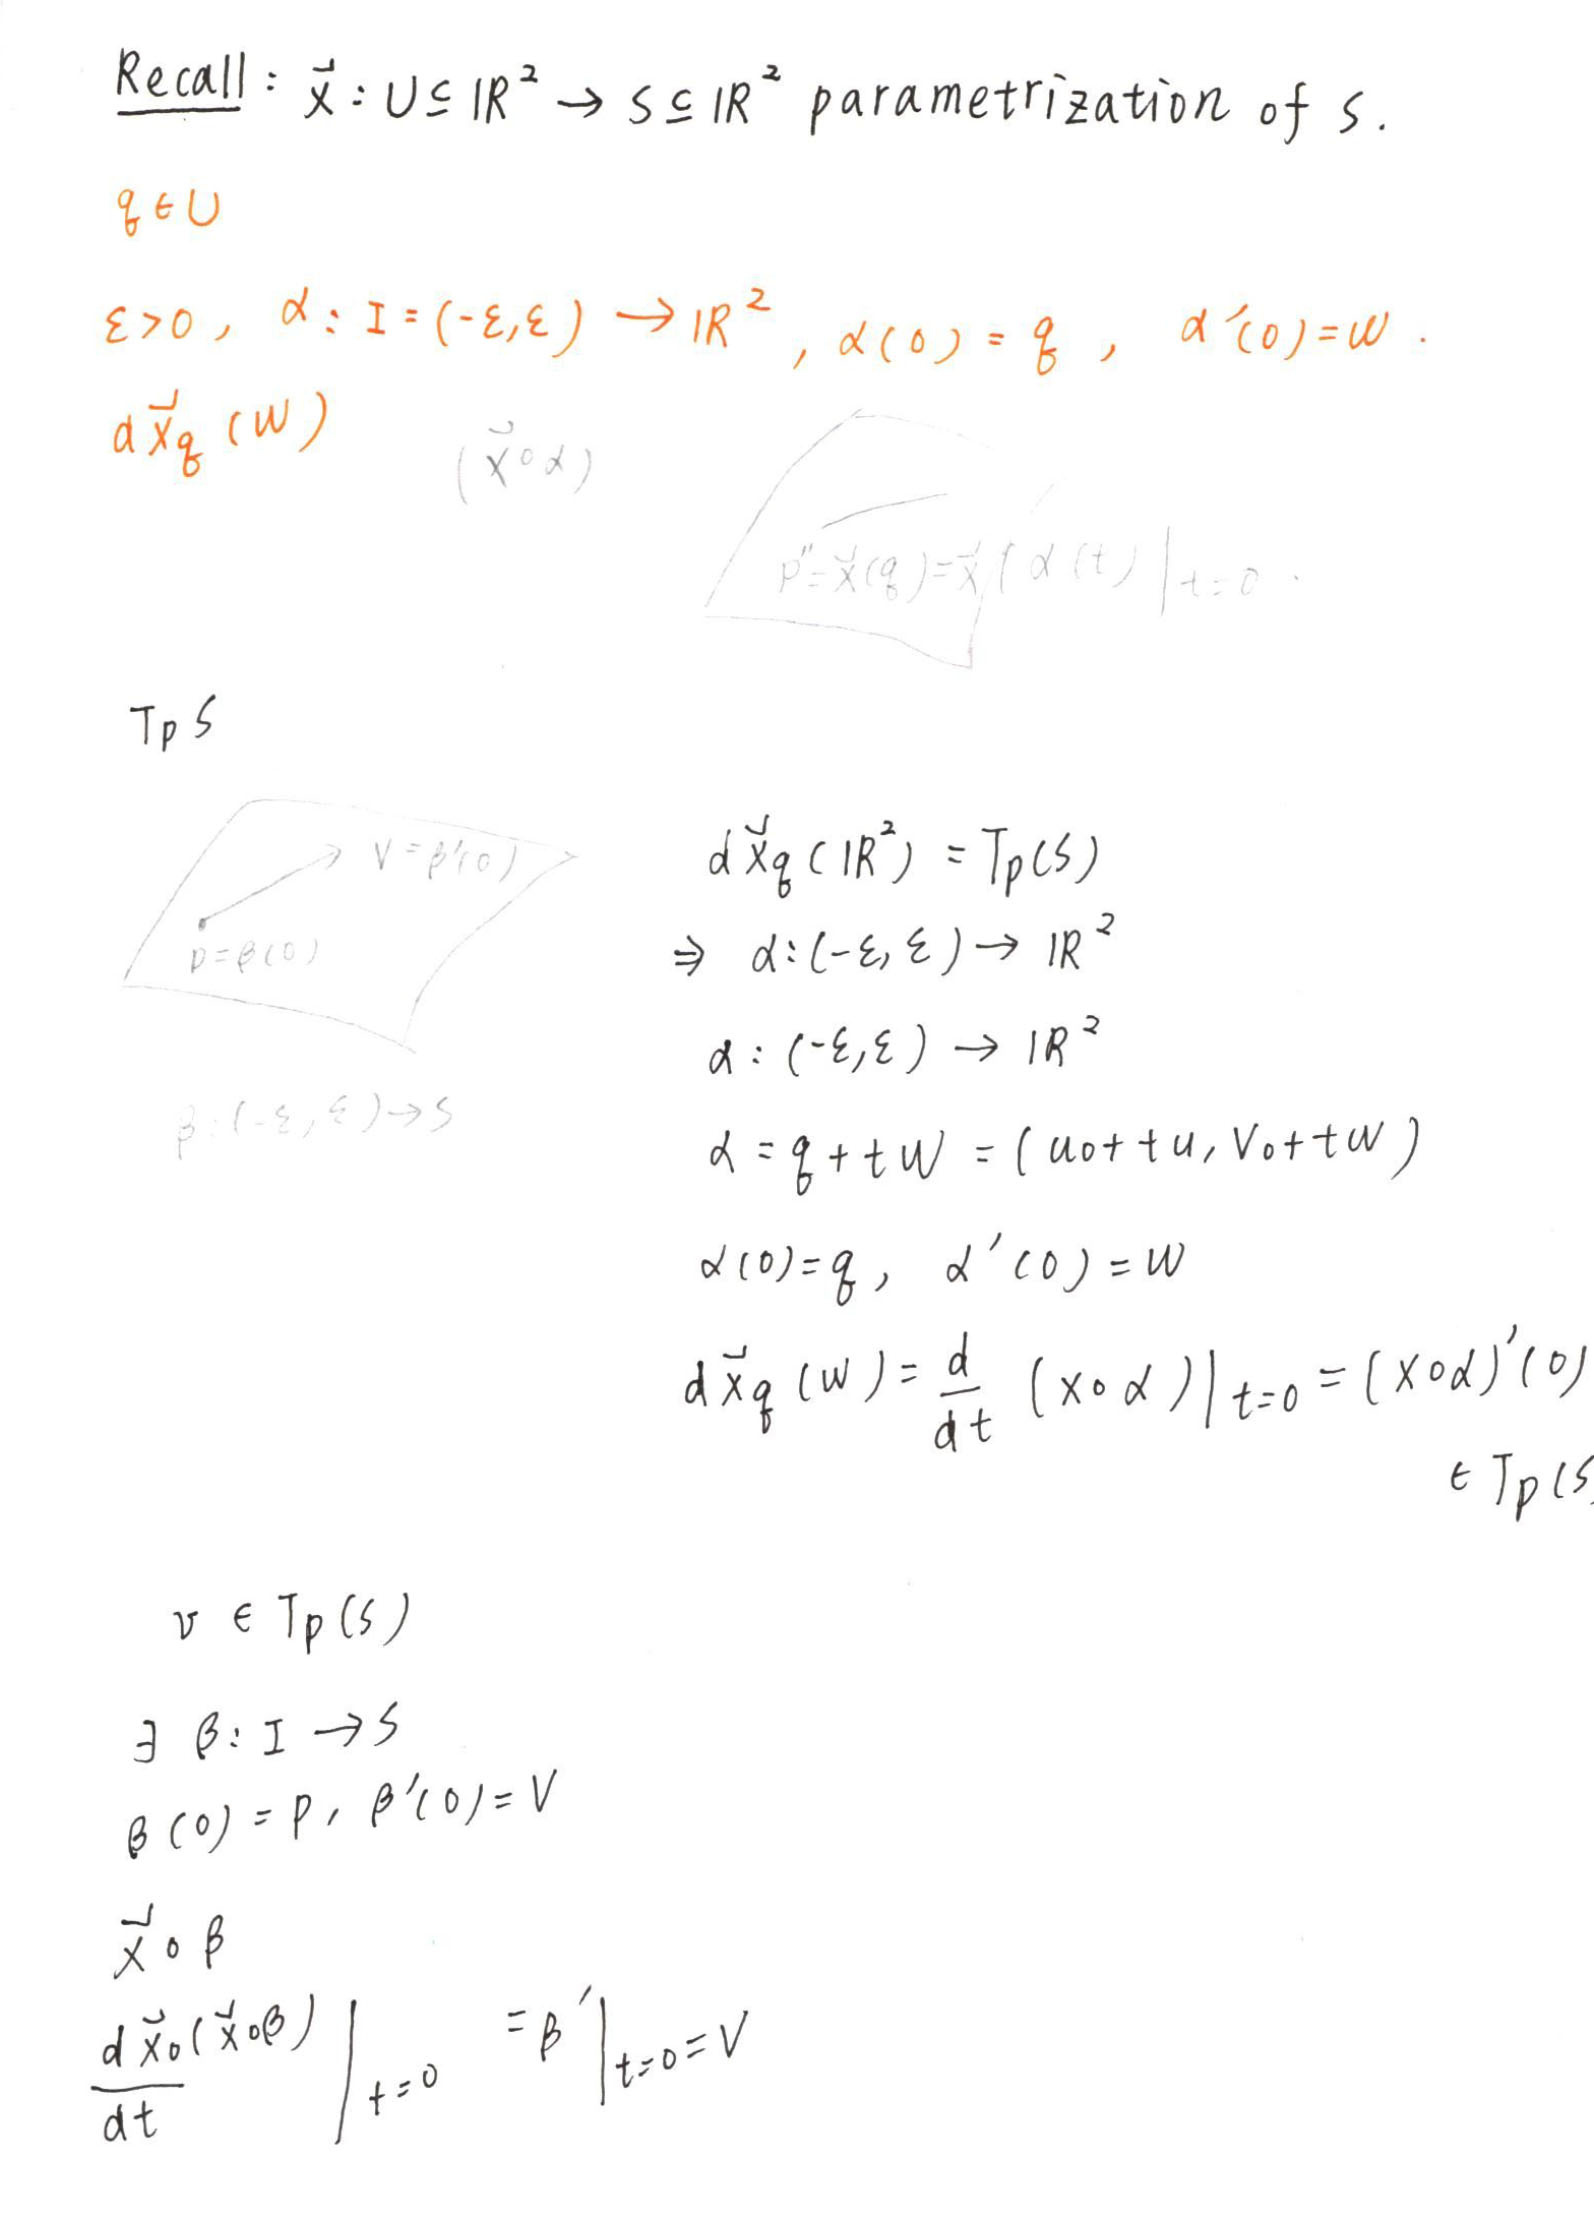 Recall: x⃗: U ⊆ ℝ² → S ⊆ ℝ² parametrization of S.
q ∈ U
ε>0, α: I = (-ε,ε) → ℝ², α(0) = q, α'(0) = w.
dx⃗q (w)
(x⃗∘α)
p" = x⃗(q) = x⃗(α(t)|t=0.
TpS
V = β'(0)
p = β(0)
β: (-ε, ε) → S
dx⃗q (ℝ²) = Tp(S)
⇒ α: (-ε, ε) → ℝ²
α: (-ε, ε) → ℝ²
α = q + tw = (u0 + tu, v0 + tw)
α(0) = q, α'(0) = w
dx⃗q (w) = d/dt (x∘α)|t=0 = (x∘α)'(0)
∈ Tp(S
v ∈ Tp(S)
∃ β: I → S
β(0) = p, β'(0) = V
x⃗∘β
dx⃗0(x⃗∘β)/dt |t=0 = β'|t=0 = V